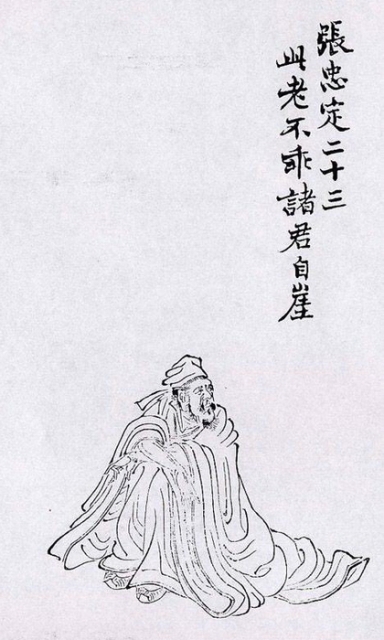 張忠定二十三
此老不乖諸君自崖